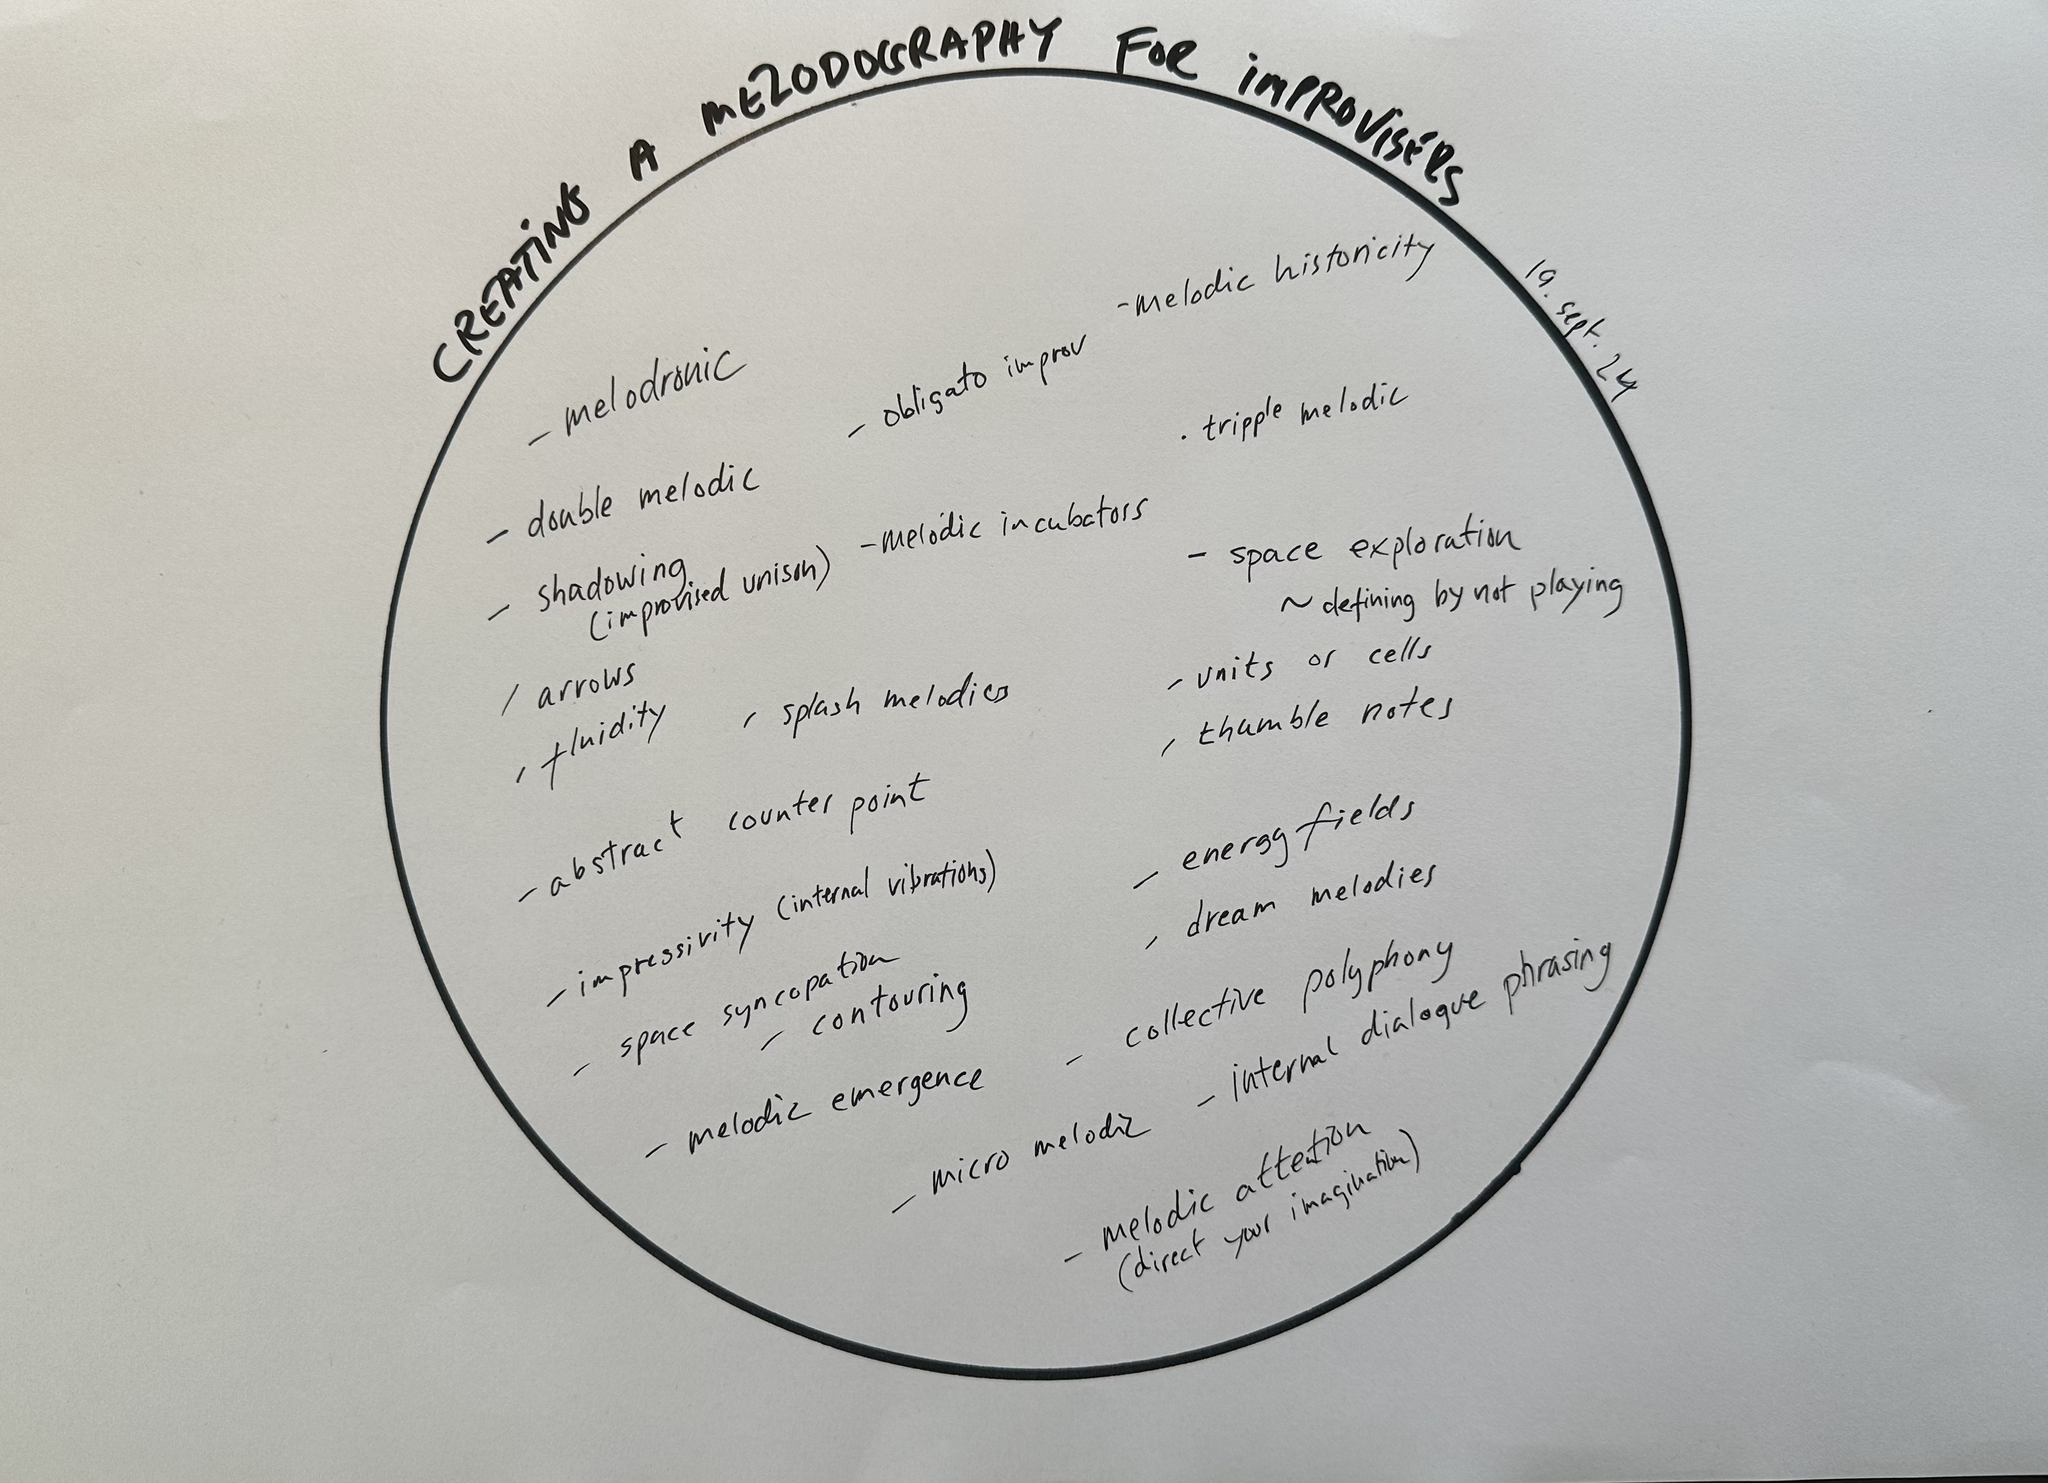 CREATING A MELODOGRAPHY FOR IMPROVISERS
19. sept. 24
- melodic historicity
- melodronic
- obligato improv
. tripple melodic
- double melodic
- melodic incubators
- shadowing
(improvised unison)
- space exploration
~ defining by not playing
- arrows
- units or cells
- fluidity
- splash melodies
- thumble notes
- abstract counter point
- energy fields
- impressivity (internal vibrations)
- dream melodies
- space syncopation
- contouring
- collective polyphony
- internal dialogue phrasing
- melodic emergence
- micro melodic
- melodic attention
(direct your imagination)